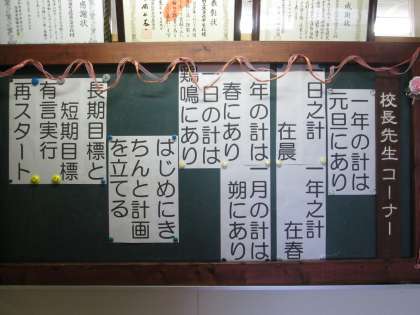 感謝状
表彰状
感謝状
校長先生コーナー
一年の計は
元旦にあり
一日之計
在晨
一年之計
在春
一年の計は
春にあり
一月の計は
朔にあり
一日の計は
鶏鳴にあり
はじめにき
ちんと計画
を立てる
長期目標と
短期目標
有言実行
再スタート